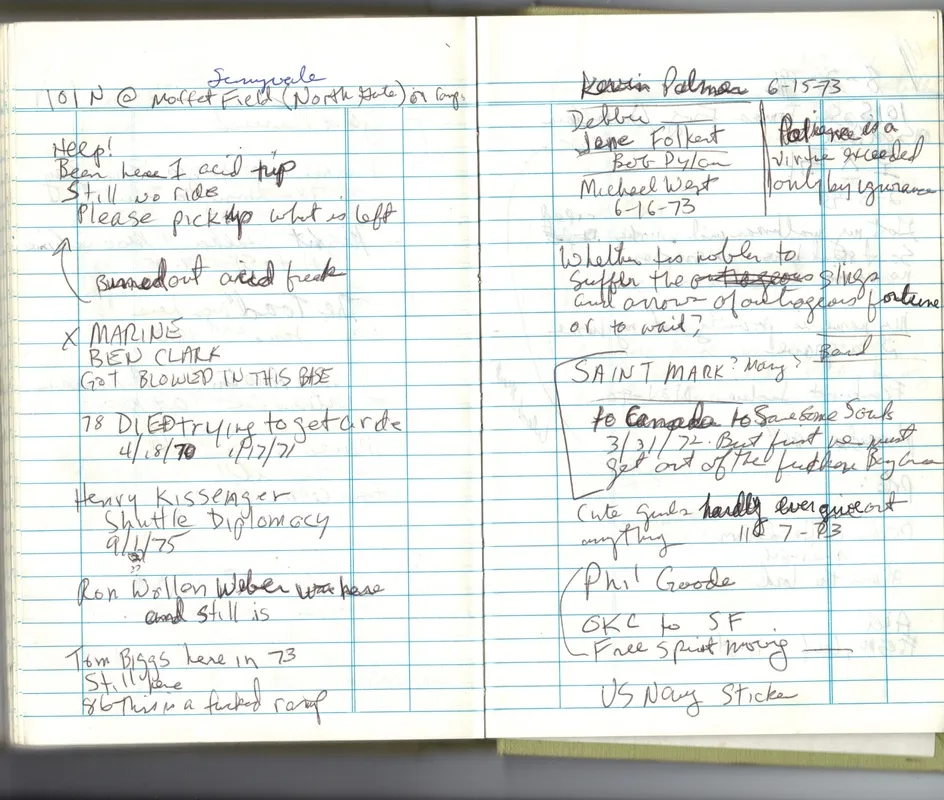 Sunnyvale
101 N @ Moffet Field (North Gate) on ramp
Heep!
Been here 1 acid trip
Still no ride
Please pick up what is left
Burned out acid freak
X MARINE
BEN CLARK
GOT BLOWED IN THIS BASE
78 DIED trying to get a ride
4/18/70 1/17/71
Henry Kissenger
Shuttle Diplomacy
9/1/75
??
Ron Weber was here
and still is
Tom Biggs here in 73
Still here
86 This is a fucked ramp
Kevin Palmer 6-15-73
Debbie
Jane Folkert
Bob Dylan
Michael West
6-16-73
Patience is a
virtue exceeded
only by ignorance
Whether tis nobler to
suffer the outrageous slings
and arrows of outrageous fortune
or to wait?
Bard
SAINT MARK? Mary?
to Canada to Save Some Souls
3/31/72. But first we must
get out of the Bay Area
Cute girls hardly ever give out
anything 7-83
Phil Goode
OKC to SF
Free spirit moving
US Navy Sticker